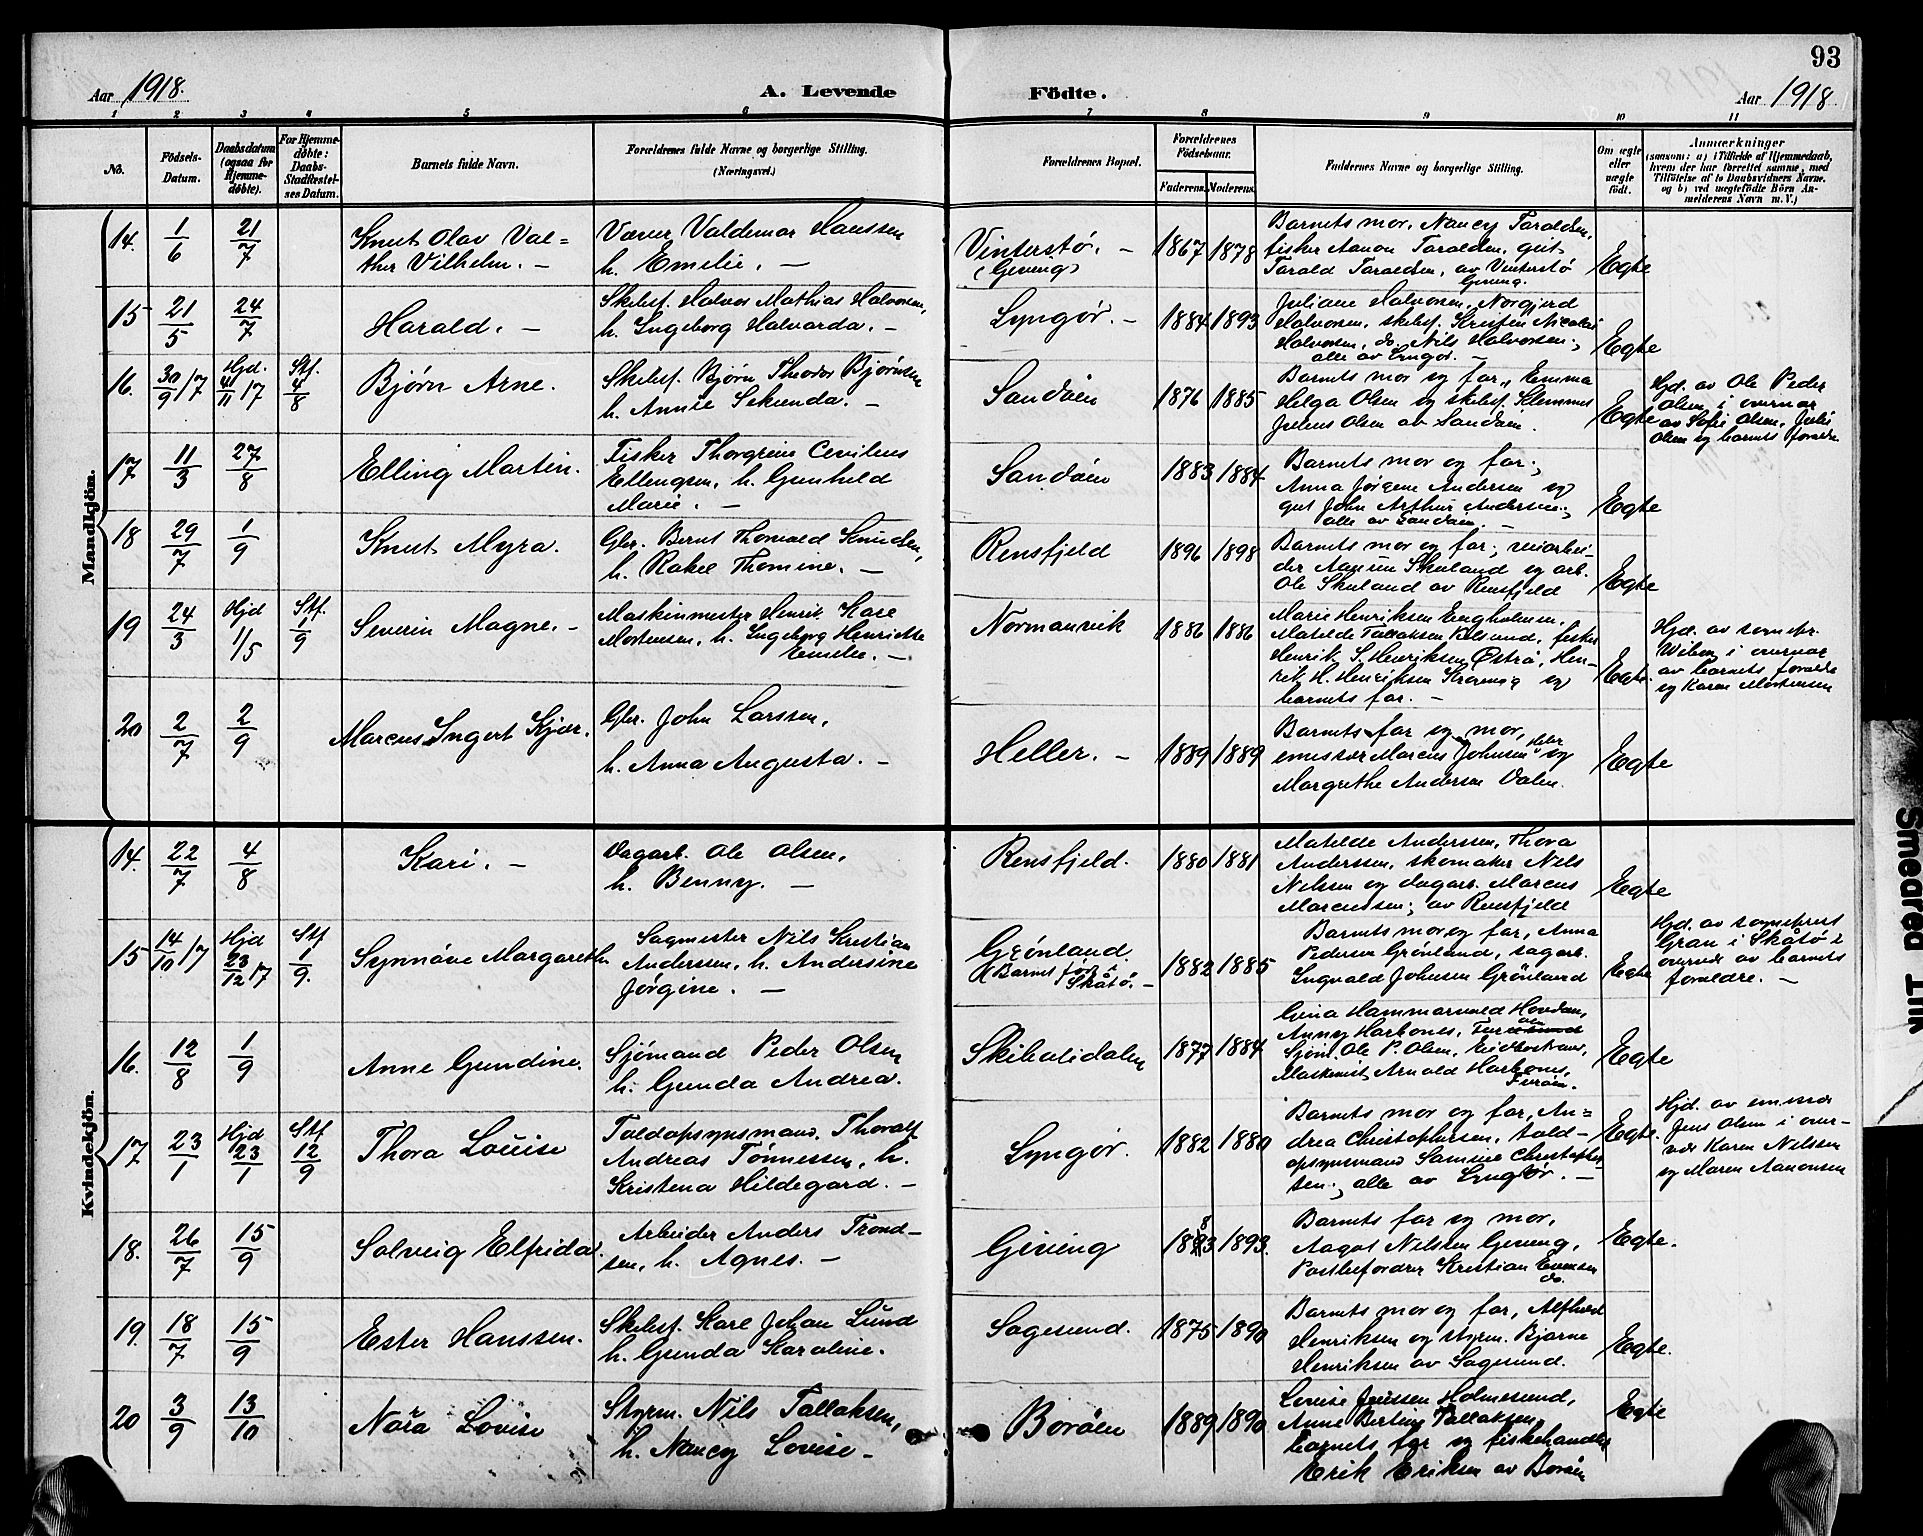 93
Aar 1918.
A. Levende
Födte.
Aar 1918
1 2 3 4 5 6 7 8 9 10 11
No.
Födsels-
Datum.
Daabsdatum
(ogsaa for
Hjemme-
döbte).
For Hjemme-
döbte:
Daabs-
Stadfæstel-
ses Datum.
Barnets fulde Navn.
Forældrenes fulde Navne og borgerlige Stilling.
(Næringsvei.)
Forældrenes Bopæl.
Forældrenes
Födselsaar.
Faderens. Moderens.
Faddernes Navne og borgerlige Stilling.
Om ægte
eller
uægte
födt.
Anmærkninger
(saasom: a) i Tilfælde af Hjemmedaab,
hvem der har forrettet samme, med
Tilföielse af to Daabsvidners Navne.
og b) ved uægtefödte Börn An-
melderens Navn m. V.)
Mandkjön.
14. 1/6 21/7
Knut Olav Val=
ther Vilhelm. –
Valdemar Hanssen
h. Emilie. –
Vinterstø. –
(Gjeving)
1867 1878
Barnets mor, Nancy Taraldsen,
fisker Aanon Taraldsen, gut
Tarald Taraldsen, av Vinterstø
Gjeving.
Egte
15 21/5 24/7
Harald. –
Skibsf. Halvor Mathias Halvorsen,
h. Ingeborg Halvarda. –
Lyngør. –
1884 1893
Juliane Halvorsen, Norgjerd
Halvorsen, skibsf. Kristen Nicolai
Halvorsen, do. Nils Halvorsen;
alle av Lyngør. –
Egte
16. 30/9 17 Hjd. 4/11 17 Stf. 4/8
Bjørn Arne.
Skibsf. Bjørn Theodor Bjørnsen
h. Annie Sekunda. –
Sandøen
1876 1885
Barnets mor og far, Emma
Helga Olsen og skibsf. Klemmet
Julius Olsen av Sandøen.
Egte
Hjd. av Ole Peder
Olsen i overvær
av Sofie Olsen, Julie
Olsen og barnets forældre
17 11/3 27/8
Elling Martin.
Fisker Thorgrim
Ellingsen, h. Gunhild
Marie. –
Sandøen
1883 1884
Barnets mor og far;
Anna Jørgine Andersen og
gut John Arthur Andersen;
alle av Sandøen. –
Egte
18 29/7 1/9
Knut Myra.
Gbr. Bernt Thorvald Knudsen,
h. Rakel Thomine. –
Rensfjeld
1896 1898
Barnets mor og far;
Skuland og arb.
Ole Skuland av Rensfjeld
Egte
19 24/3 Hjd 1/5 Stf. 1/9
Severin Magne. –
Maskinmester Henrik Kase
Mortensen, h. Ingeborg Henriette
Emelie. –
Normanvik
1886 1886
Marie Henriksen Engholmen,
Matilde Tallaksen, fisker
Henrik S. Henriksen Østrå, Hen-
rik H. Henriksen og
barnets far. –
Egte.
Hjd. av sognepr.
i overvær
av barnets forældre
og Karen Mortensen
20 2/7 2/9
Marcus Ingert Kjær.
Gbr. John Larssen,
h. Anna Augusta. –
Heller. –
1889 1889
Barnets far og mor,
emissær Marcus Johnsen og
Margrethe Andersen Valen.
Egte
Kvindekjön.
14. 22/7 4/8
Kari. –
Dagarb. Ole Olsen,
h. Benny. –
Rensfjeld.
1880 1881
Matilde Anderssen, Thora
Anderssen, skomaker Nils
Nilssen og dagarb. Marcus
Marcussen; av Rensfjeld
Egte
15 14/10 17 Hjd 23/12 17 Stf 1/9.
Synnøve Margareth.
Sagmester Nils Kristian
Anderssen, h. Andersine
Jørgine. –
Grønland.
(Barnet født i
Skåtø. –
1882 1885
Barnets mor og far, Anna
Pedersen Grønland, sagarb.
Ingvald Johnsen Grönland
Egte
Hjd. av sogneprest
Gran i Skåtø i
overvær av barnets
forældre. –
16. 12/8 1/9
Anne Gundine.
Sjömand Peder Olsen
h. Gunda Andrea.
1877 1884
Gina Hammarvald
Anny Harbones,
Sjöm. Ole P. Olsen,
Maskinist Arnold Harbones,
Egte
17 23/1 Hjd 23/1 Stf 12/9
Thora Louise
Toldopsynsmand. Thoralf
Andreas Tönnessen, h.
Kristena Hildegard. –
Lyngør.
1882 1880
Barnets mor og far, An-
drea Christophersen, told-
opsynsmand Samine Christopher-
sen; alle av Lyngør. –
Egte.
Hjd. av
Jens Olsen i over-
vær Karen Nilssen
og Maren Aanonsen
18. 26/7 15/9
Solveig Elfrida.
Arbeider Anders Trond-
sen, h. Agnes. –
Gjeving
1883 1893.
Barnets far og mor,
Aagot Nilsen Gjeving,
Postbefordrer Kristian Evensen
do.
Egte.
19. 18/7 15/9
Ester Hanssen.
Skibsf. Karl Johan Lund
h. Gunda Karoline.
Sagesund.
1875 1890
Barnets mor og far, Alfhild
Henriksen og styrm. Bjarne
Henriksen av Sagesund.
Egte.
20 3/9 13/10
Nora Lovise
Styrm. Nils Tallaksen,
h. Nancy Lovise –
Borøen
1889 1890
Lovise Jenssen Holmesund,
Anne Bertine Tallaksen,
barnets far og fiskehandler
Erik Eriksen av Borøen
Egte
Smeared Ink